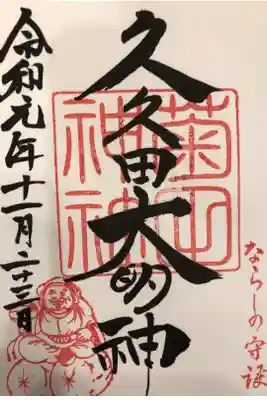 久久田大明神
菊田
神社
令和元年十一月二十三日
ならしの守護